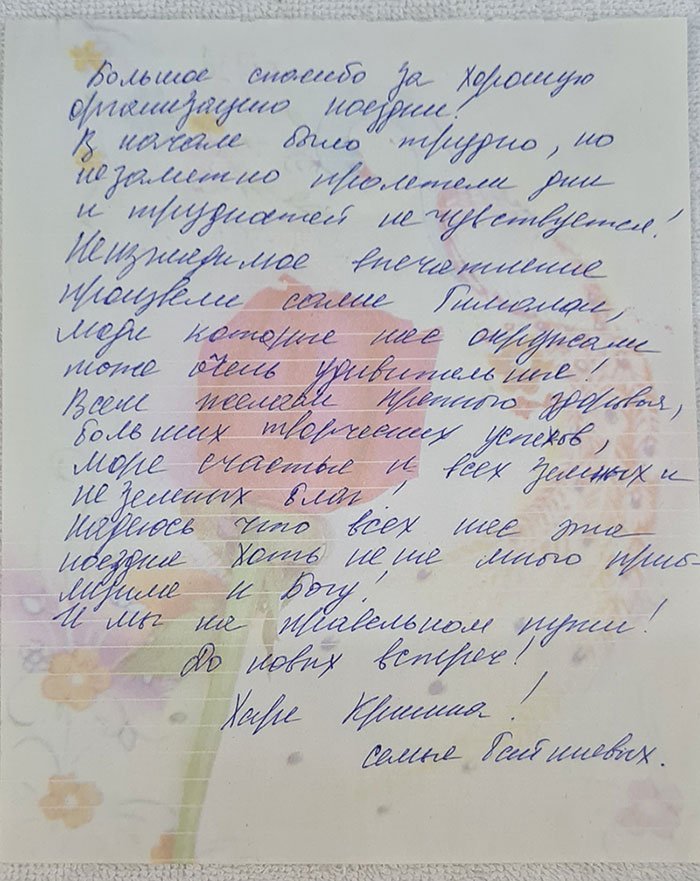 Большое спасибо за хорошую
организацию поездки!
В начале было трудно, но
незаметно пролетели дни
и трудностей не чувствуется!
Неизгладимое впечатление
произвели сами Гималаи,
люди которые нас окружали
тоже очень удивительные!
Всем желаем крепкого здоровья,
больших творческих успехов,
море счастья и всех земных и
неземных благ!
Надеюсь что всех нас эта
поездка хоть не на много приб-
лизила к Богу!
И мы на правельном пути!
До новых встреч!
Харе Кришна!
семья